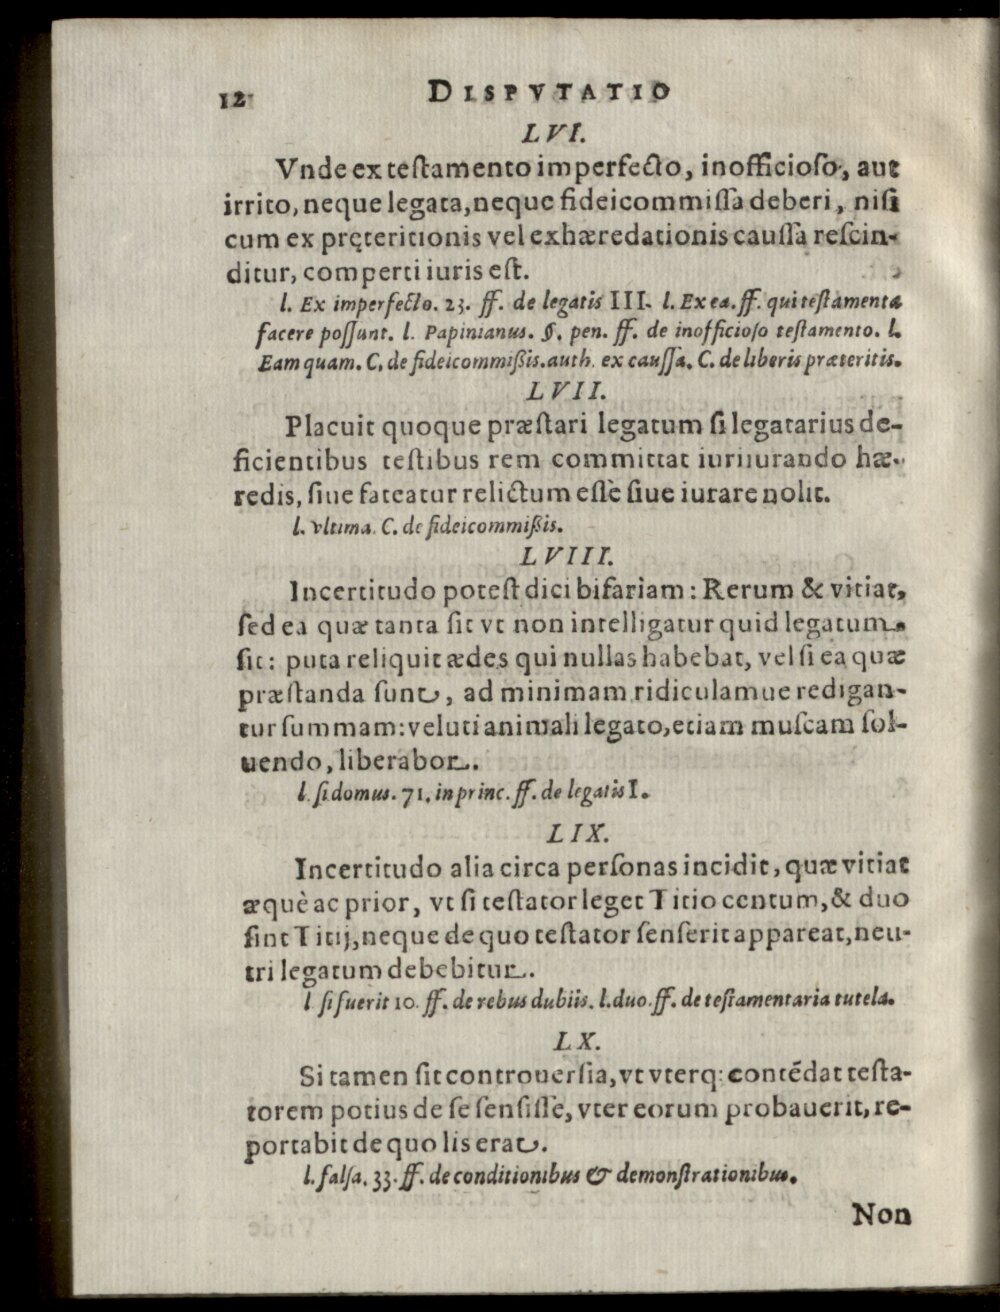 12 DISPVTATIO
LVI.
Vnde ex teſtamento imperfecto, inofficioſo, aut
irrito, neque legata, neque fideicommiſſa deberi, niſi
cum ex pręteritionis vel exhæredationis cauſſa reſcin-
ditur, comperti iuris eſt.
l. Ex imperfecto. 23. ff. de legatis III. l. Ex ea. ff. qui teſtamenta
facere poſſunt. l. Papinianus. §. pen. ff. de inofficioſo teſtamento. l.
Eam quam. C. de fideicommißis. auth. ex cauſſa. C. de liberis præteritis.
LVII.
Placuit quoque præſtari legatum ſi legatarius de-
ficientibus teſtibus rem committat iuriiurando hæ-
redis, ſiue fateatur relictum eſſe ſiue iurare nolit.
l. vltima. C. de fideicommißis.
LVIII.
Incertitudo poteſt dici bifariam: Rerum & vitiat,
ſed ea quæ tanta ſit vt non intelligatur quid legatum
ſit: puta reliquit ædes qui nullas habebat, vel ſi ea quæ
præſtanda ſunt, ad minimam ridiculamue redigan-
tur ſummam: veluti animali legato, etiam muſcam ſol-
uendo, liberabor.
l. ſi domus. 71. in princ. ff. de legatis I.
LIX.
Incertitudo alia circa perſonas incidit, quæ vitiat
æquè ac prior, vt ſi teſtator leget Titio centum, & duo
ſint Titij, neque de quo teſtator ſenſerit appareat, neu-
tri legatum debebitur.
l ſi fuerit 10. ff. de rebus dubiis. l. duo. ff. de teſtamentaria tutela.
LX.
Si tamen ſit controuerſia, vt vterq: contēdat teſta-
torem potius de ſe ſenſiſſe, vter eorum probauerit, re-
portabit de quo lis erat.
l. falſa. 33. ff. de conditionibus & demonſtrationibus.
Non